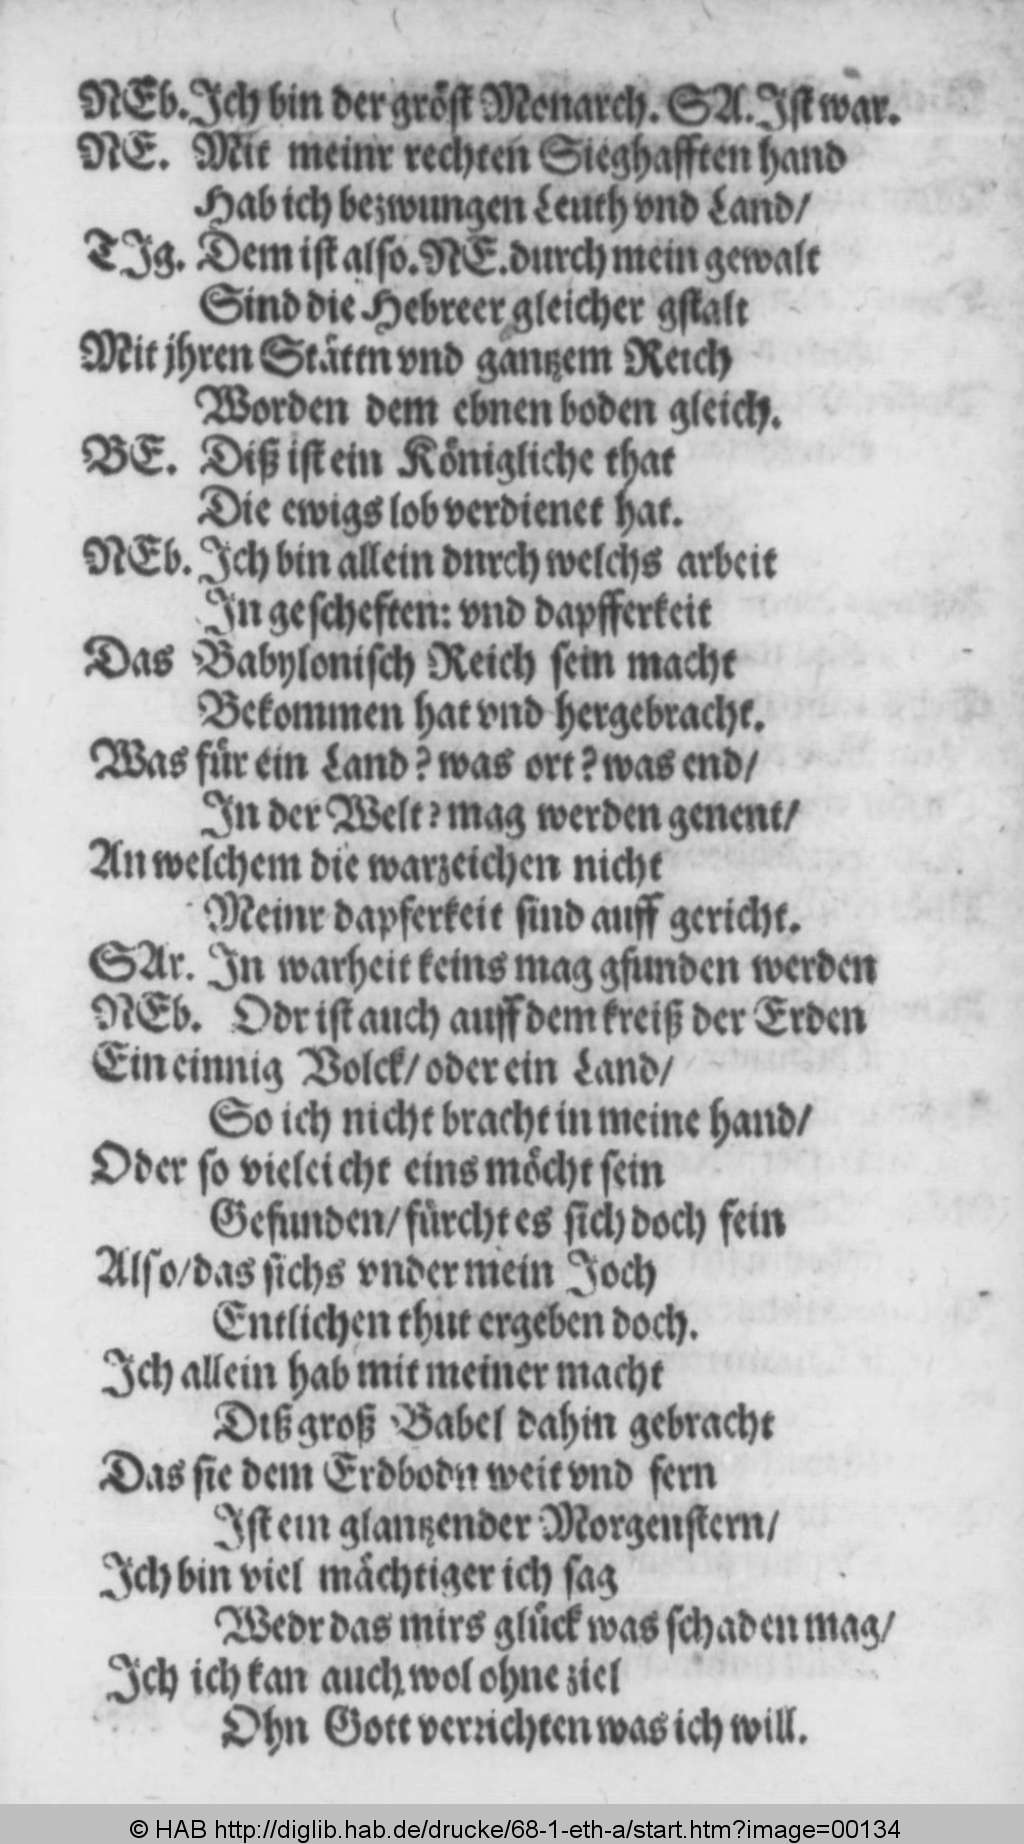 NEb. Ich bin der gröst Monarch. SA. Ist war.
NE. Mit meinr rechten Sieghafften hand
Hab ich bezwungen Leuth vnd Land/
TIg. Dem ist also. NE. durch mein gewalt
Sind die Hebreer gleicher gstalt
Mit jhren Stättn vnd gantzem Reich
Worden dem ebnen boden gleich.
BE. Diß ist ein Königliche that
Die ewigs lob verdienet hat.
NEb. Ich bin allein dnrch welchs arbeit
In gescheften: vnd dapfferkeit
Das Babylonisch Reich sein macht
Bekommen hat vnd hergebracht.
Was für ein Land? was ort? was end/
In der Welt? mag werden genent/
An welchem die warzeichen nicht
Meinr dapferkeit sind auff gericht.
SAr. In warheit keins mag gfunden werden
NEb. Odr ist auch auff dem kreiß der Erden
Ein einnig Volck/ oder ein Land/
So ich nicht bracht in meine hand/
Oder so vieleicht eins möcht sein
Gefunden/ fürcht es sich doch fein
Also/ das sichs vnder mein Joch
Entlichen thut ergeben doch.
Ich allein hab mit meiner macht
Diß groß Babel dahin gebracht
Das sie dem Erdbodn weit vnd fern
Ist ein glantzender Morgenstern/
Ich bin viel mächtiger ich sag
Wedr das mirs glück was schaden mag/
Ich ich kan auch wol ohne ziel
Ohn Gott verrichten was ich will.
© HAB http://diglib.hab.de/drucke/68-1-eth-a/start.htm?image=00134